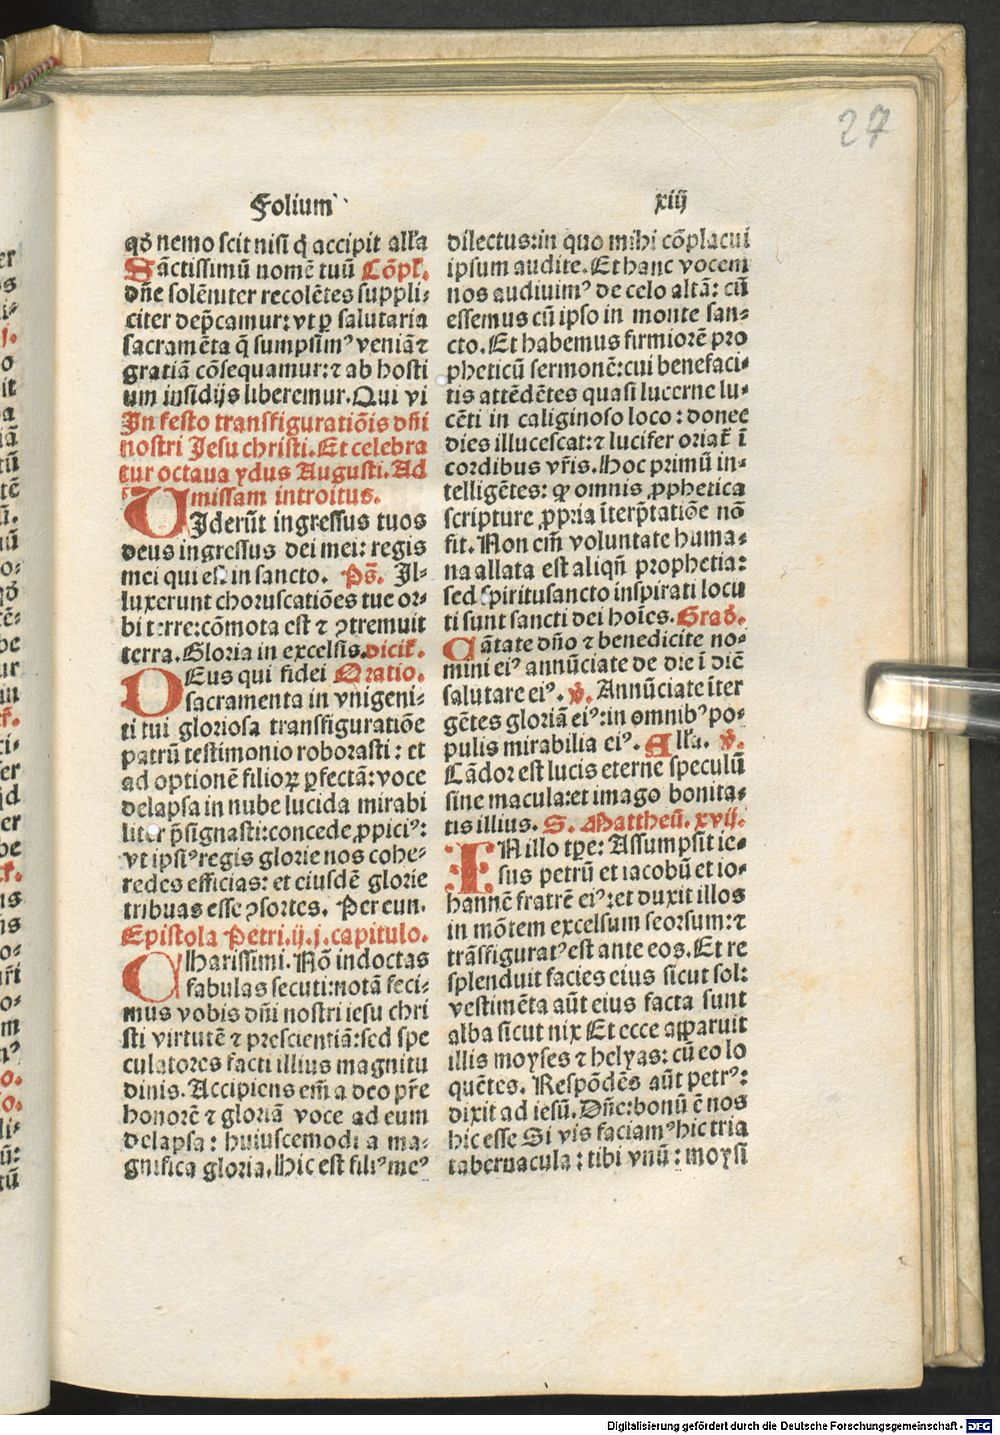 27
Folium xiij
qđ nemo scit nisi q̄ accipit alľa
Sāctissimū nomē tuū Cōpľ.
dn̄e solēniter recolētes suppli⸗
citer dep̄camur: vt ꝑ salutaria
sacramēta q̄ sumpsimꝰ veniā ⁊
gratiā cōsequamur: ⁊ ab hosti
um insidijs liberemur. Qui vi
In festo transfiguratiōis dn̄i
nostri Jesu christi. Et celebra
tur octaua ydus Augusti. Ad
missam introitus.
UJderūt ingressus tuos
deus ingressus dei mei: regis
mei qui est in sancto. Ps̄. Jl⸗
luxerunt choruscatiōes tue or⸗
bi terre: cōmota est ⁊ ꝯtremuit
terra. Gloria in excelsis. dicit̄.
DEus qui fidei Oratio.
sacramenta in vnigeni⸗
ti tui gloriosa transfiguratiōe
patrū testimonio roborasti: et
ad optionē filioꝝ ꝑfectā: voce
delapsa in nube lucida mirabi
liter p̄signasti: concede ꝓpiciꝰ:
vt ipsiꝰ regis glorie nos cohe⸗
redes efficias: et eiusdē glorie
tribuas esse ꝯsortes. Per eun.
Epistola Petri. ij. j. capitulo.
CHarissimi. Nō indoctas
fabulas secuti: notā feci⸗
mus vobis dn̄i nostri iesu chri
sti virtutē ⁊ prescientiā: sed spe
culatores facti illius magnitu
dinis. Accipiens em̄ a deo pr̄e
honorē ⁊ gloriā voce ad eum
delapsa: huiuscemodi a ma⸗
gnifica gloria. Hic est filiꝰ meꝰ
dilectus: in quo mihi cōplacui
ipsum audite. Et hanc vocem
nos audiuimꝰ de celo altā: cū
essemus cū ipso in monte san⸗
cto. Et habemus firmiorē pro
pheticū sermonē: cui benefaci⸗
tis attēdētes quasi lucerne lu⸗
cēti in caliginoso loco: donec
dies illucescat: ⁊ lucifer oriat̄ ī
cordibus vr̄is. Hoc primū in⸗
telligētes: ꝙ omnis ꝓphetica
scripture ꝓpria īterp̄tatiōe nō
fit. Non em̄ voluntate huma⸗
na allata est aliqn̄ prophetia:
sed spiritusancto inspirati locu
ti sunt sancti dei hoīes. Građ.
Cātate dn̄o ⁊ benedicite no⸗
mini eiꝰ annūciate de die ī diē
salutare eiꝰ. ℣. Annūciate īter
gētes gloriā eiꝰ: in omnibꝰ po⸗
pulis mirabilia eiꝰ. Alľa. ℣.
Cādor est lucis eterne speculū
sine macula: et imago bonita⸗
tis illius. S. Mattheū. xvij.
IN illo tꝑe: Assumpsit ie⸗
sus petrū et iacobū et io⸗
hannē fratrē eiꝰ: et duxit illos
in mōtem excelsum seorsum: ⁊
trāsfiguratꝰ est ante eos. Et re
splenduit facies eius sicut sol:
vestimēta aūt eius facta sunt
alba sicut nix Et ecce apparuit
illis moyses ⁊ helyas: cū eo lo
quētes. Respōdēs aūt petrꝰ:
dixit ad iesū. Dn̄e: bonū ē nos
hic esse Si vis faciamꝰ hic tria
tabernacula: tibi vnū: moysi
Digitalisierung gefördert durch die Deutsche Forschungsgemeinschaft - DFG